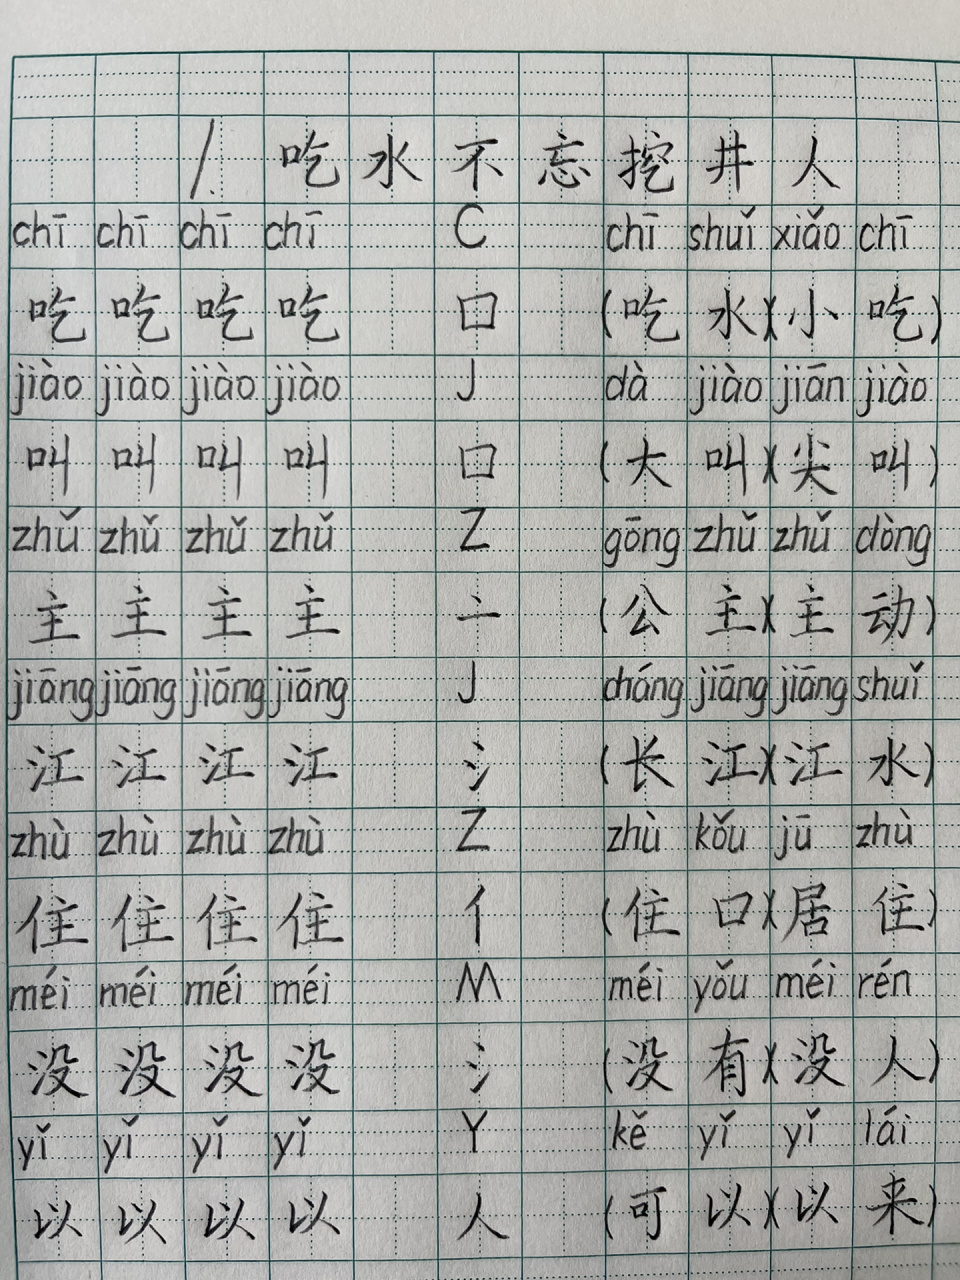 1. 吃水不忘挖井人
chī chī chī chī C chī shuǐ xiǎo chī
吃 吃 吃 吃 口 (吃水)(小吃)
jiào jiào jiào jiào J dà jiào jiān jiào
叫 叫 叫 叫 口 (大叫)(尖叫)
zhǔ zhǔ zhǔ zhǔ Z gōng zhǔ zhǔ dòng
主 主 主 主 亠 (公主)(主动)
jiāng jiāng jiāng jiāng J cháng jiāng jiāng shuǐ
江 江 江 江 氵 (长江)(江水)
zhù zhù zhù zhù Z zhù kǒu jū zhù
住 住 住 住 亻 (住口)(居住)
méi méi méi méi M méi yǒu méi rén
没 没 没 没 氵 (没有)(没人)
yǐ yǐ yǐ yǐ Y kě yǐ yǐ lái
以 以 以 以 人 (可以)(以来)